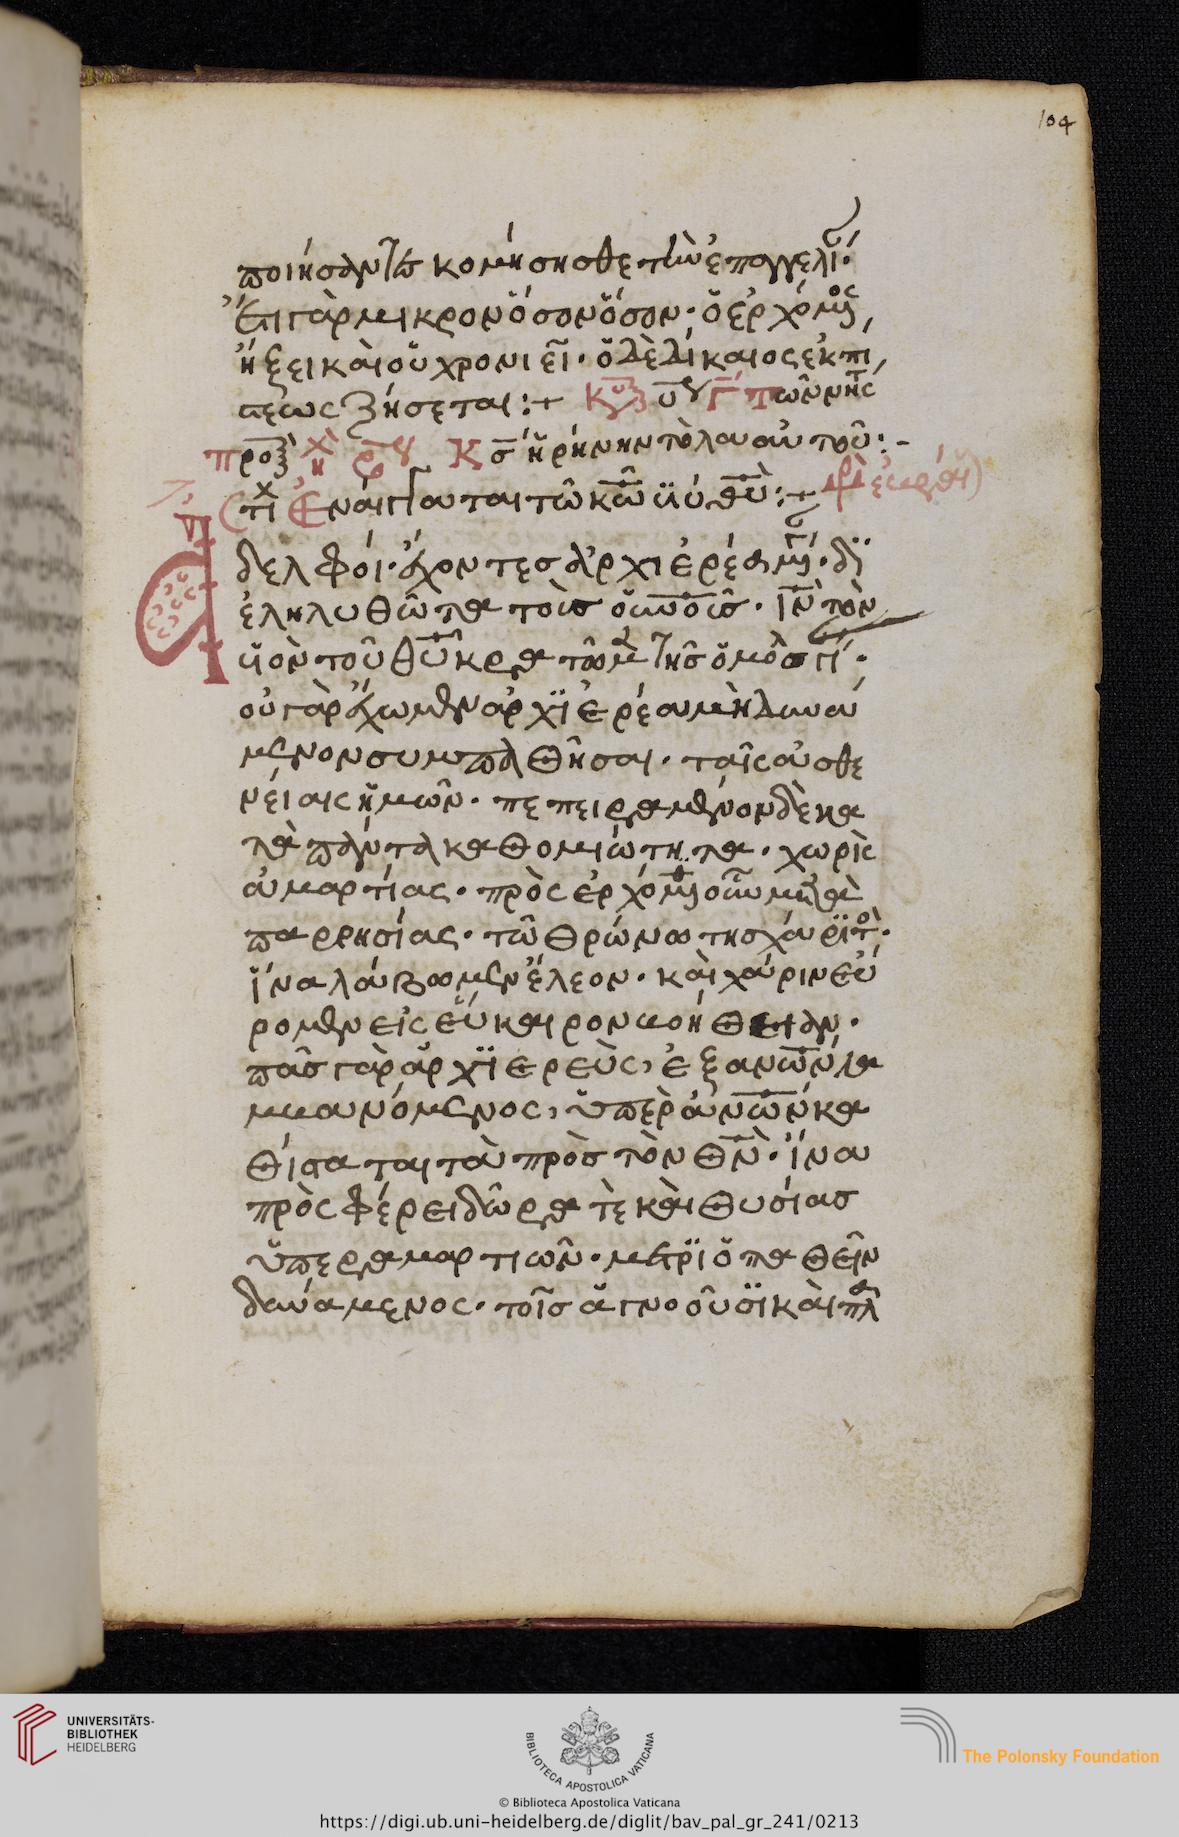 104
ποιήσαντες κομήσησθε τὴν ἐπαγγελί
Ἔτι γὰρ μικρον ὅσον ὅσον· ὁ ἐρχόμος
ἥξει καὶ οὐ χρονιεῖ· ὁ δὲ δίκαιος ἐκ πί
στεως ζήσεται:+ Κυ Γ Τῶν νη
προ Κ εἰρήνην τὸ λαὸν αὐτοῦ:-
στι Ἐνέγκαται τῶ κω υἱοὶ θυ:+
δελφοί· ἔχοντες ἀρχιερέα μέγ· δι
εληλυθῶτα τοὺς οὐνοὺς· ιν τὸν
υἱὸν τοῦ θυ κρατῶμ τῆς ὁμολογί·
οὐ γὰρ ἔχωμεν ἀρχιερέα μὴ δυνά
μενον συμπαθῆσαι· ταῖς ἀσθε
νείαις ἡμῶν· πεπειραμένον δὲ κα
τὰ πάντα καθ ομιώτητα· χωρὶς
ἁμαρτίας· προσερχόμεθα οὖν μετὰ
παρρησίας· τῶ θρόνω της χάριτο·
ἵνα λάβωμεν ἔλεον· καὶ χάριν εὕ
ρομεν εἰς εὔκαιρον βοήθειαν·
πᾶς γὰρ ἀρχιερεὺς, ἐξ ανων λα
μβανόμενος, ὑπὲρ ἀνων κα
θίσταται τὰ πρὸς τὸν θν· ἵνα
πρὸς φέρει δῶρα τὲ καὶ θυσίας
ὑπερ αμαρτιῶν· μετριοπαθεῖν
δυνάμενος· τοῖς ἀγνοοῦσι καὶ πλα
UNIVERSITÄTS-
BIBLIOTHEK
HEIDELBERG
BIBLIOTECA APOSTOLICA VATICANA
The Polonsky Foundation
© Biblioteca Apostolica Vaticana
https://digi.ub.uni-heidelberg.de/diglit/bav_pal_gr_241/0213